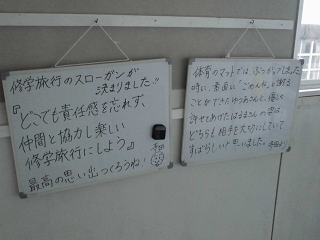 修学旅行のスローガンが
決まりました!!
『どこでも責任感を忘れず、
仲間と協力し楽しい
修学旅行にしよう』
最高の思い出つくろうね!
体育のマットでは、ぶつかってしまった
時に、素直に「ごめんね」と謝る
ことができたゆうあさんと、優しく
許せてあげた
どちらも相手を大切にしていて
すばらしいと思いました。